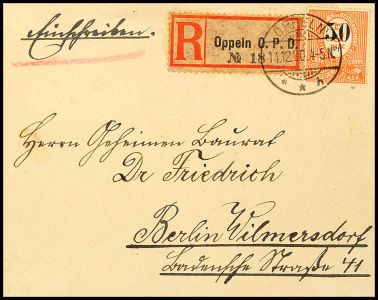 Einschreiben.
R
Oppeln O. P. D.
№ 18
OPPELN
11.12.20. 4-5 N.
50
Herrn Geheimen Baurat
Dr Friedrich
Berlin Wilmersdorf
Badensche Straße 41